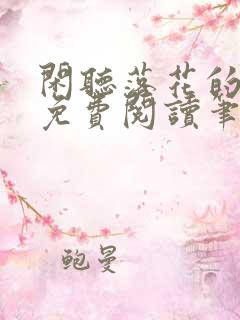 閑聽落花的
免費閱讀筆
鲍曼